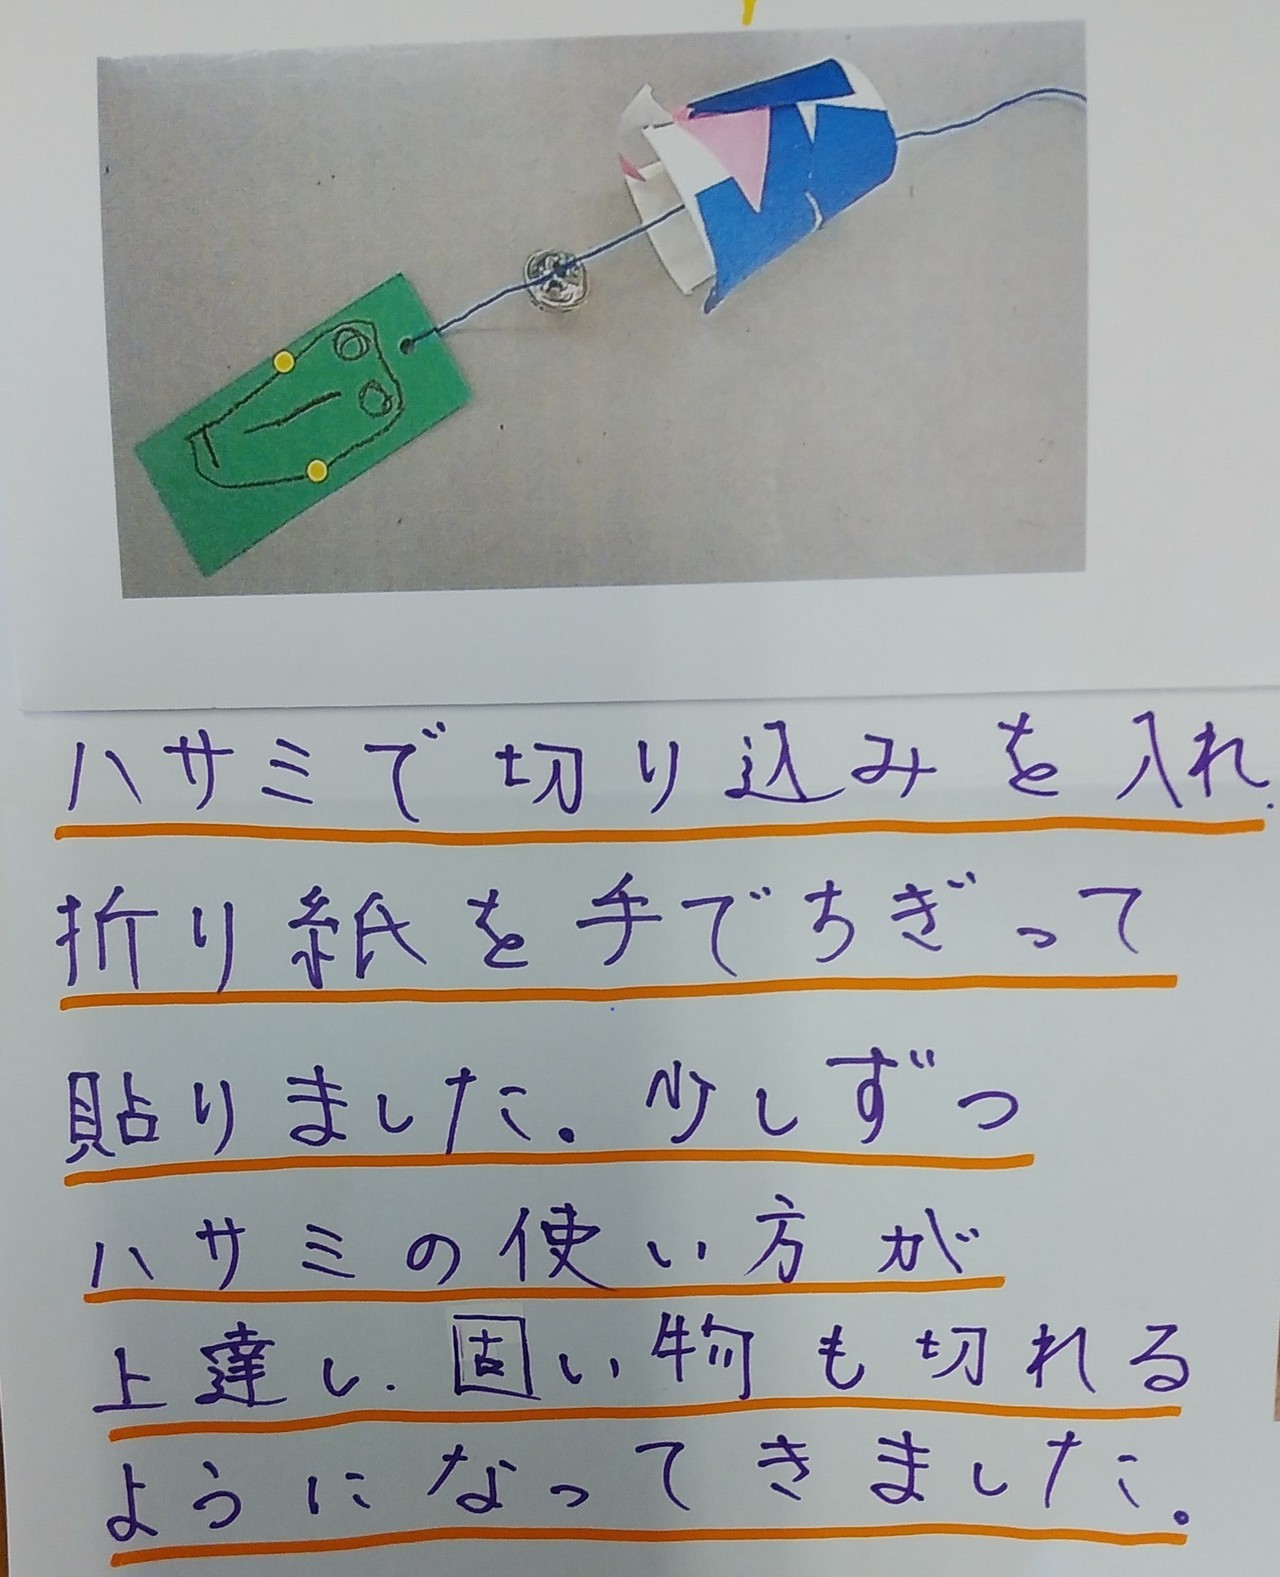 ハサミで切り込みを入れ.
折り紙を手でちぎって
貼りました。少しずつ
ハサミの使い方が
上達し.固い物も切れる
ようになってきました。